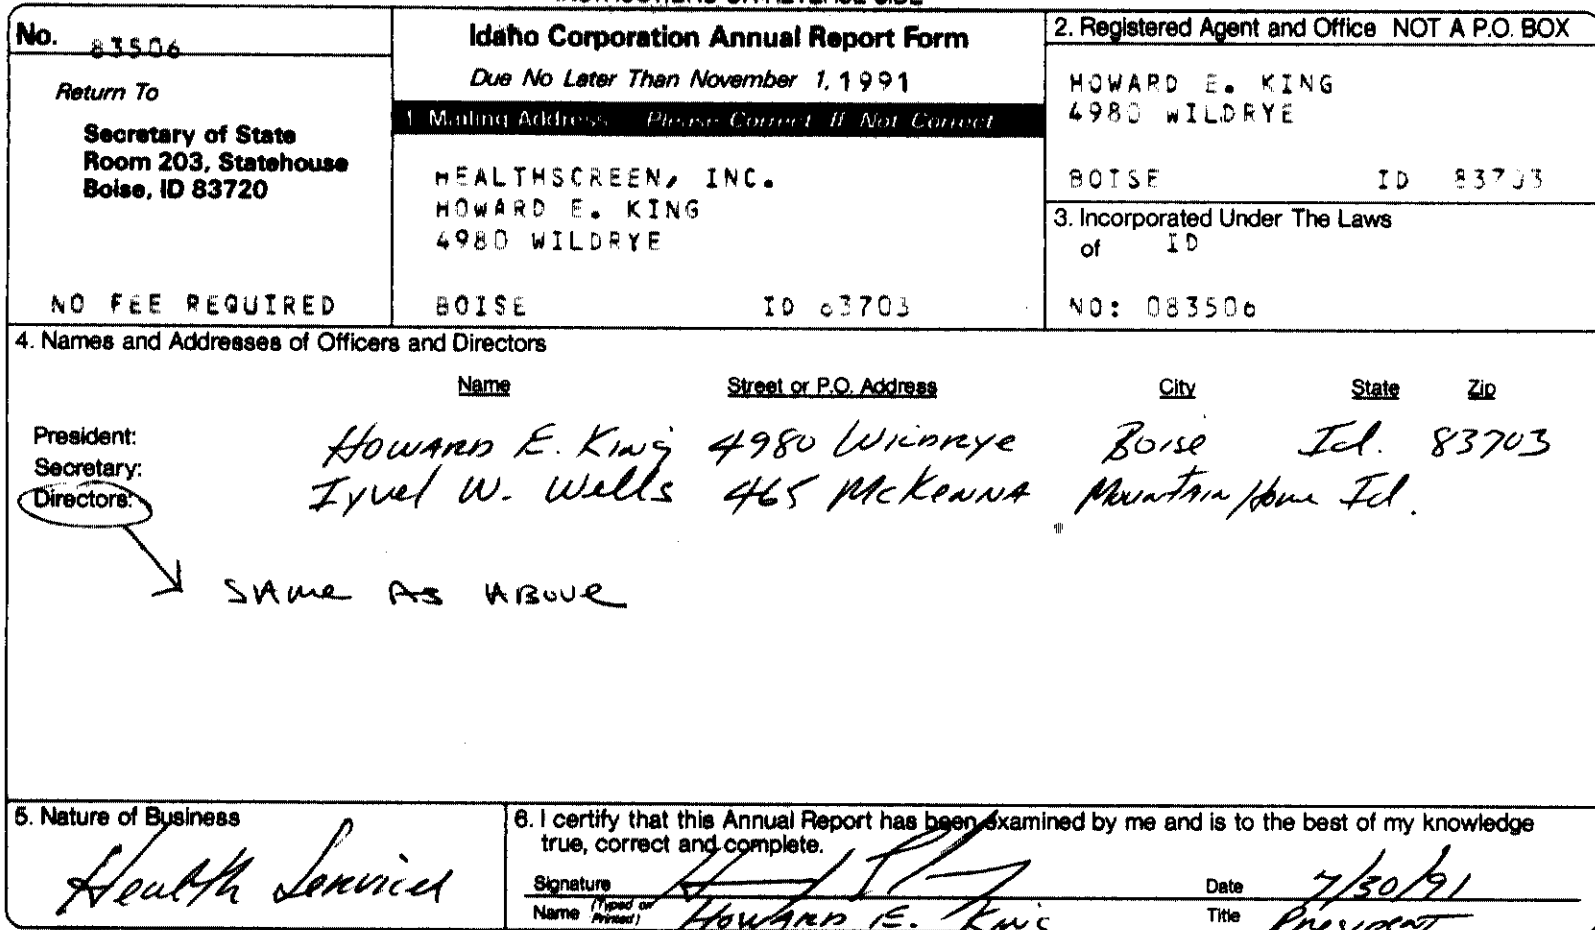 No. 83506
Return To
Secretary of State
Room 203, Statehouse
Boise, ID 83720
NO FEE REQUIRED
Idaho Corporation Annual Report Form
Due No Later Than November 1, 1991
1. Mailing Address Please Correct If Not Correct
HEALTHSCREEN, INC.
HOWARD E. KING
4980 WILDRYE
BOISE ID 83703
2. Registered Agent and Office NOT A P.O. BOX
HOWARD E. KING
4980 WILDRYE
BOISE ID 83703
3. Incorporated Under The Laws
of ID
NO: 083506
4. Names and Addresses of Officers and Directors
Name Street or P.O. Address City State Zip
President: Howard E. King 4980 Wildrye Boise Id. 83703
Secretary: Iyvel W. Wells 465 McKenna Mountain Home Id.
Directors:
Same As Above
5. Nature of Business
Health Services
6. I certify that this Annual Report has been examined by me and is to the best of my knowledge
true, correct and complete.
Signature Date 7/30/91
Name (Typed or Printed) Howard E. King Title President